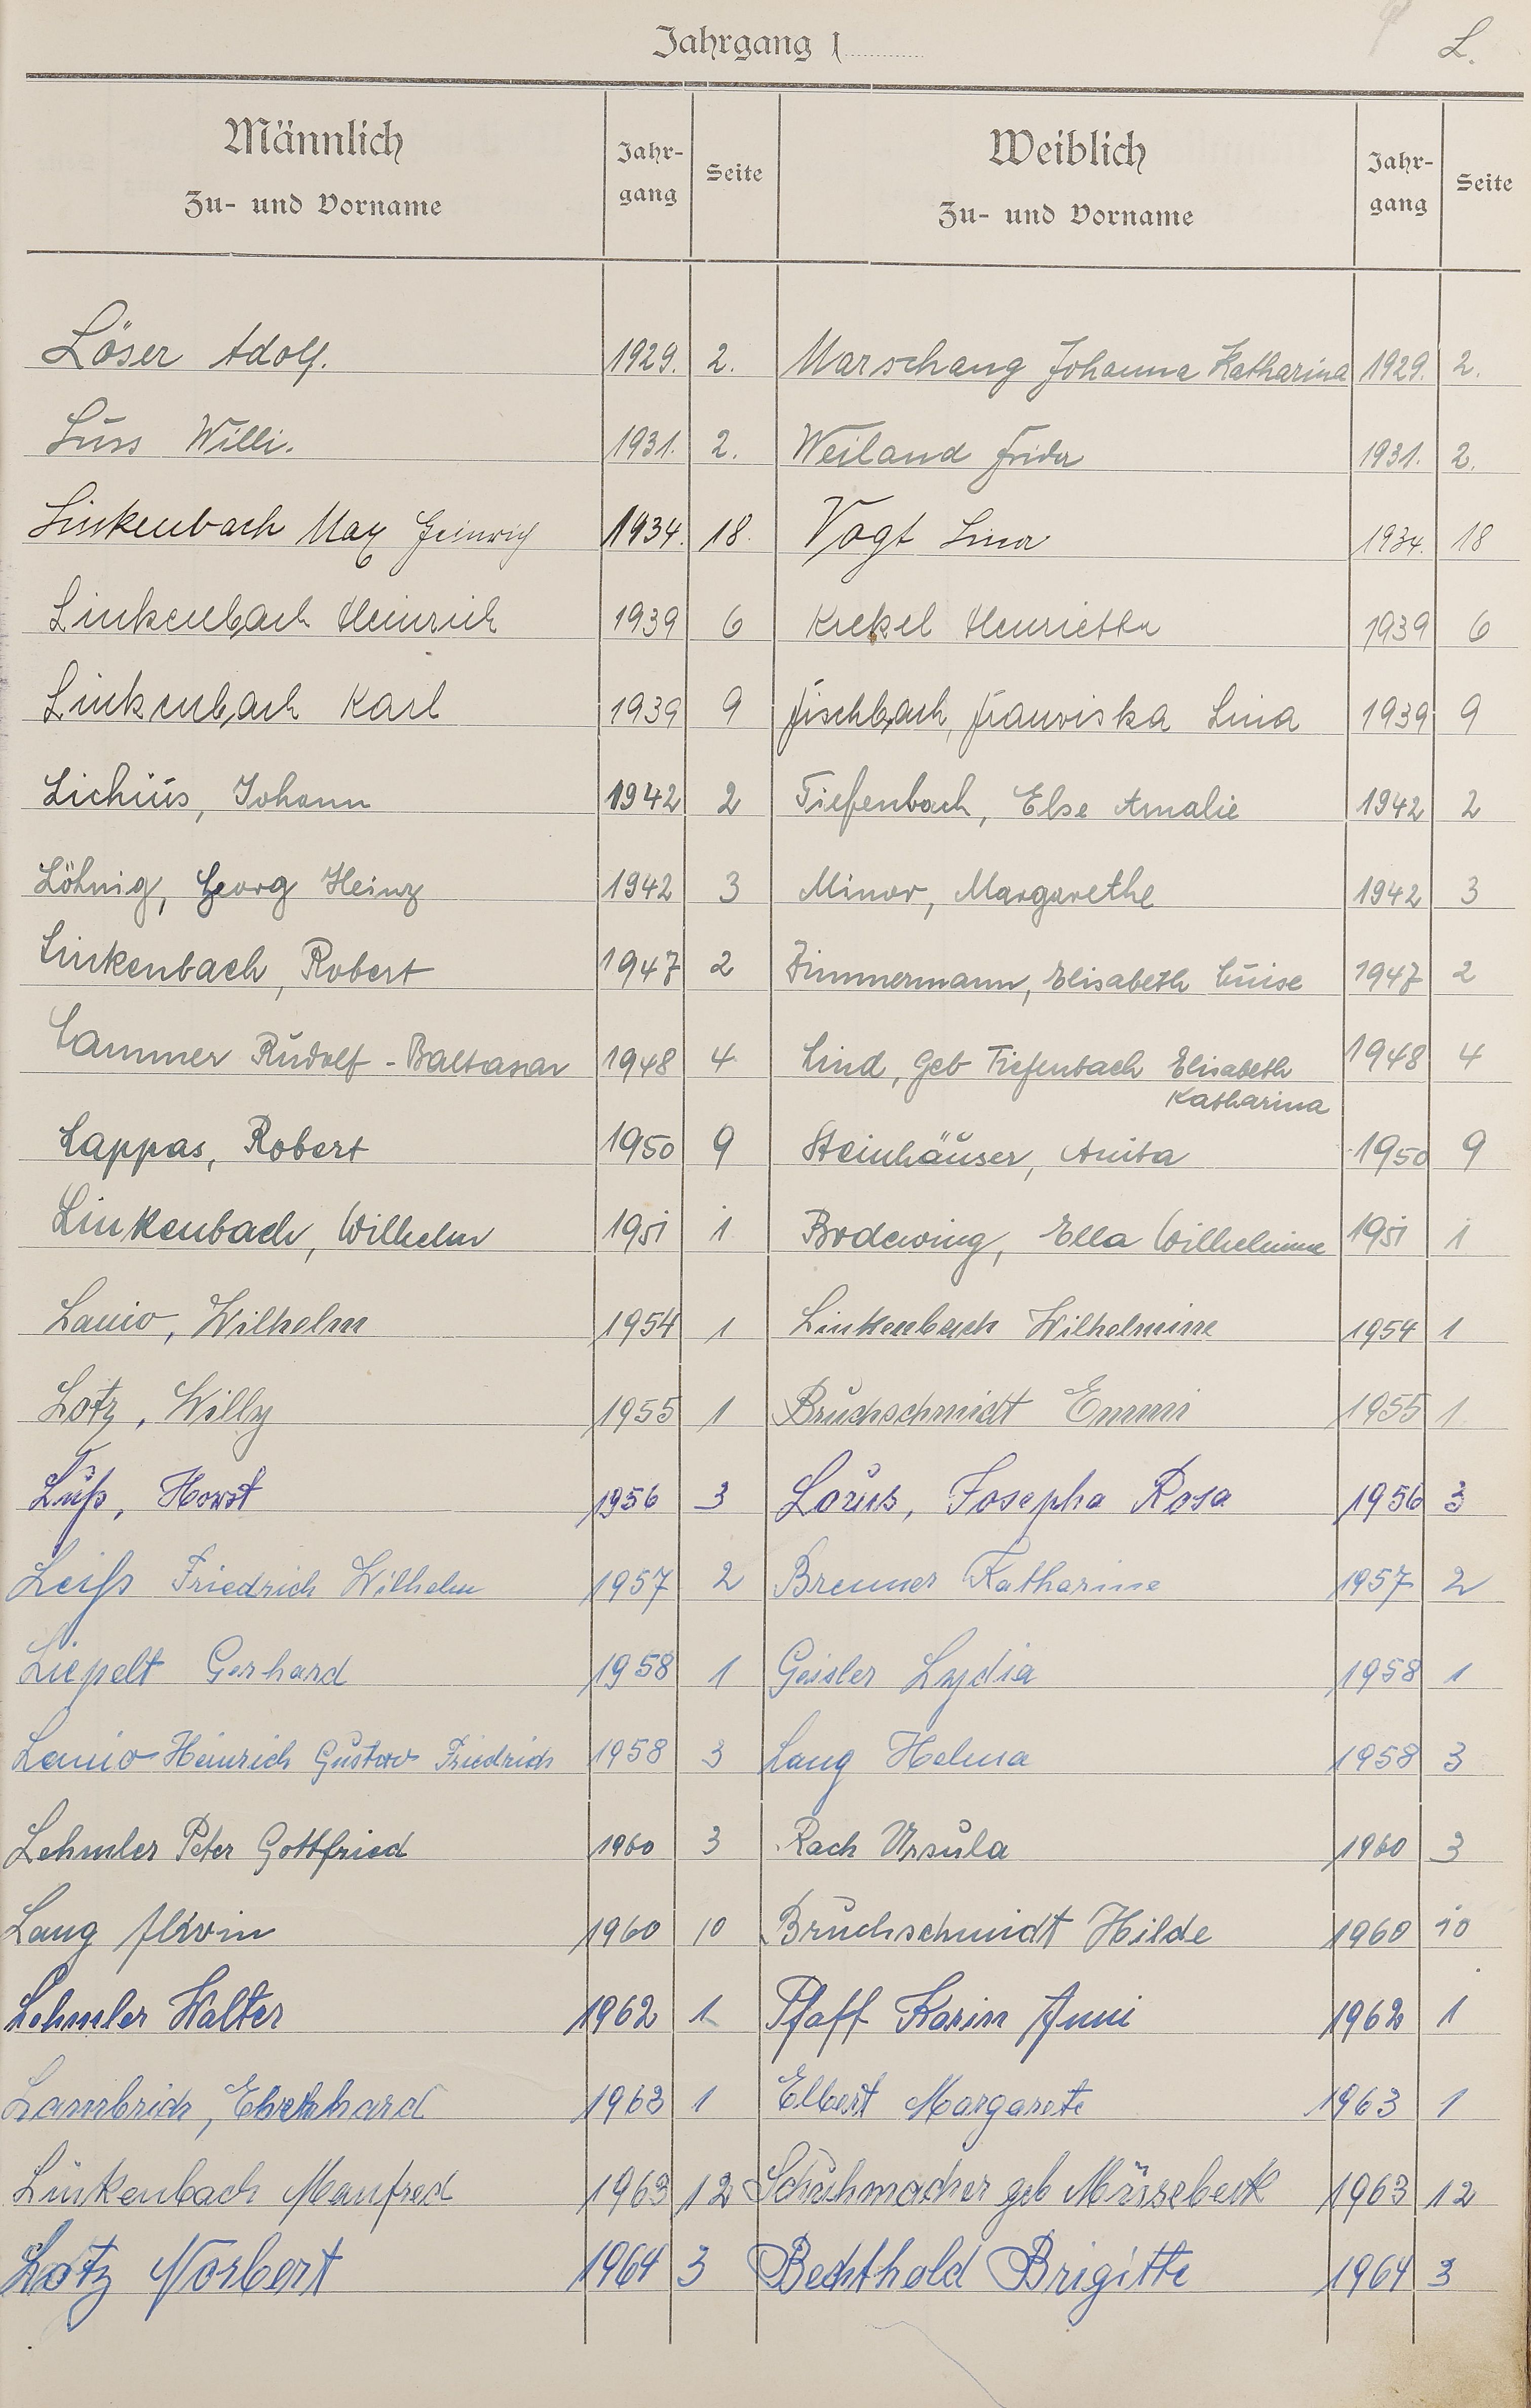 Jahrgang 1
L.
Männlich Zu- und Vorname Jahr-gang Seite Weiblich Zu- und Vorname Jahr-gang Seite
Löser Adolf. 1929. 2. Marschang Johanna Katharina 1929. 2.
Luss Willi. 1931. 2. Weiland Frida 1931. 2.
Linkenbach Max Heinrich 1934. 18. Vogt Lina 1934. 18
Linkenbach Heinrich 1939 6 Krekel Henrietta 1939 6
Linkenbach Karl 1939 9 Fischbach, Franziska Lina 1939 9
Lichius, Johann 1942 2 Tiefenbach, Else Amalie 1942 2
Löhnig, Georg Heinz 1942 3 Minor, Margarethe 1942 3
Linkenbach, Robert 1947 2 Zimmermann, Elisabeth Luise 1947 2
Lammer Rudolf - Baltasar 1948 4 Lind, Geb Tiefenbach Elisabeth 1948 4
Katharina
Lappas, Robert 1950 9 Steinhäuser, Anita 1950 9
Linkenbach, Wilhelm 1951 1 Bodewing, Ella Wilhelmine 1951 1
Lanio, Wilhelm 1954 1 Linkenbach Wilhelmine 1954 1
Lotz, Willy 1955 1 Bruchschmidt Emmi 1955 1
Luß, Horst 1956 3 Josepha Rosa 1956 3
Leiß Friedrich Wilhelm 1957 2 Brenner Katharine 1957 2
Liepelt Gerhard 1958 1 Geisler Lydia 1958 1
Lanio Heinrich Gustav Friedrich 1958 3 Lang Helma 1958 3
Lehmler Peter Gottfried 1960 3 Rach Ursula 1960 3
Lang Alwin 1960 10 Bruchschmidt Hilde 1960 10
Lehmler Walter 1962 1 Pfaff Karin Anni 1962 1
Lambrich, Eberhard 1963 1 Elbert Margarete 1963 1
Linkenbach Manfred 1963 12 Schuhmacher geb Müssebeck 1963 12
Lotz Norbert 1964 3 Bechthold Brigitte 1964 3